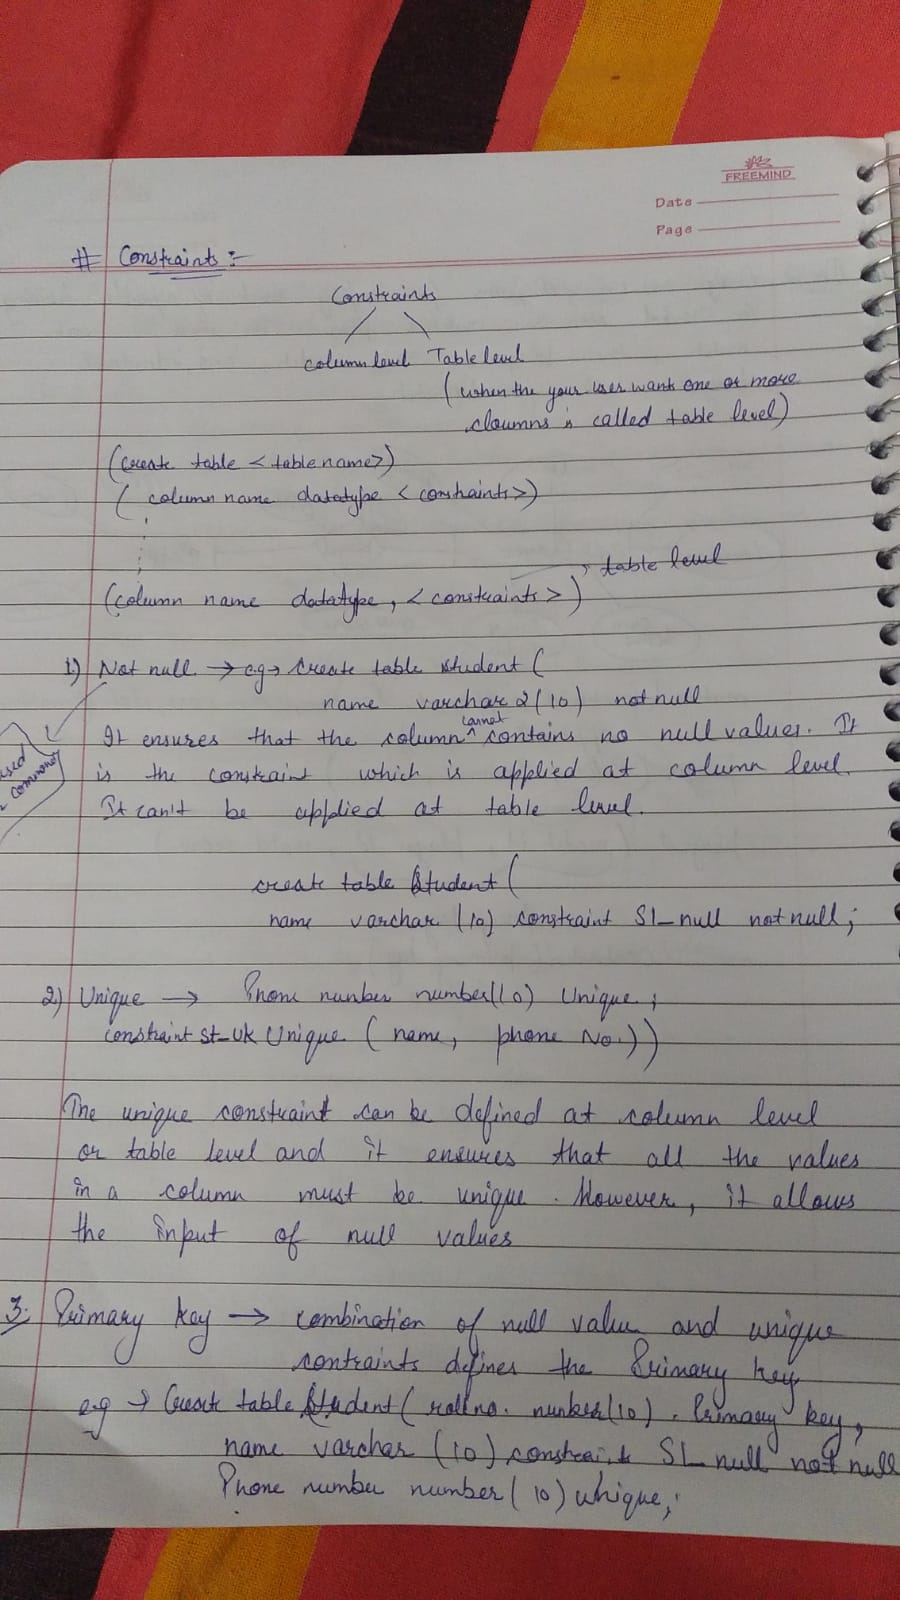 FREEMIND
Date
Page
# Constraints :-
Constraints
column level Table level
(when the your user want one or more
cloumns is called table level)
(Create table <table name>)
( column name datatype <constraints>)
table level
(column name datatype, <constraints>)
1) Not null → eg → Create table student (
name varchar2(10) not null
cannot
It ensures that the column ^ contains no null values. It
used
is the constraint which is applied at column level.
commonly
It can't be applied at table level.
create table Student (
name varchar (10) constraint S1_null not null;
2) Unique → Phone number number(10) Unique;
constraint st_uk Unique (name, phone No.))
The unique constraint can be defined at column level
or table level and it ensures that all the values
in a column must be unique. However, it allows
the input of null values
3. Primary key → combination of null value and unique
contraints defines the Primary key
eg → Create table Student (rollno. number(10). Primary key,
name varchar (10) constraint S1_null not null
Phone number number(10) unique;